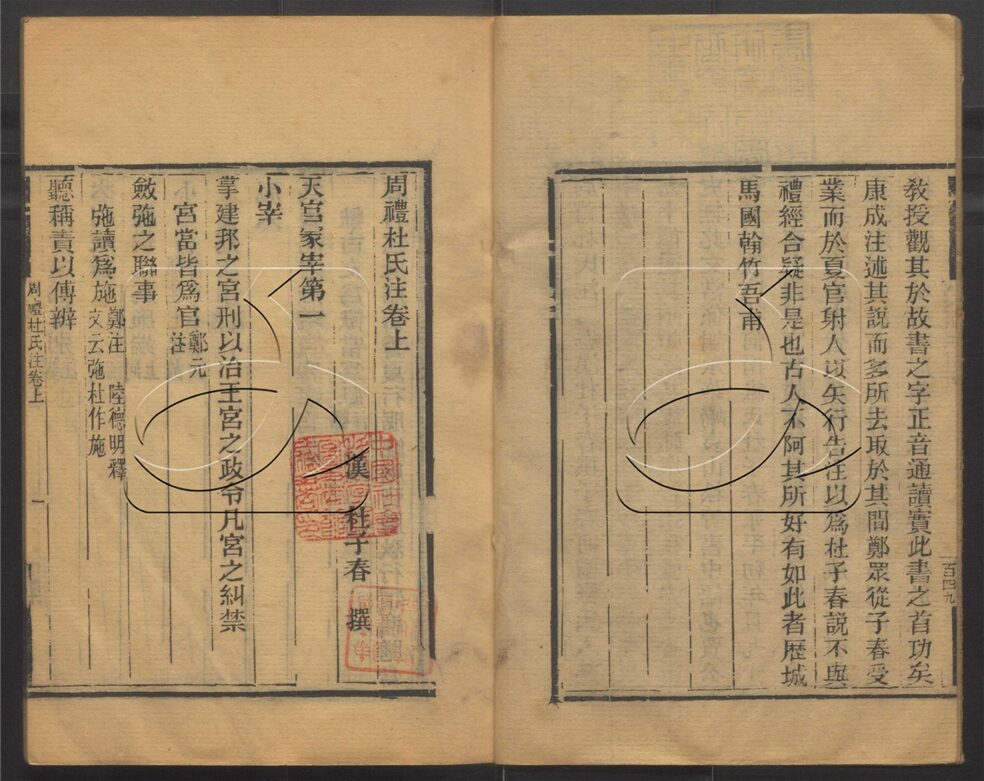 教授觀其於故書之字正音通讀實此書之首功矣
康成注述其說而多所去取於其間鄭眾從子春受
業而於夏官射人以矢行告注以爲杜子春說不與
禮經合疑非是也古人不阿其所好有如此者歷城
馬國翰竹吾甫
百四九
周禮杜氏注卷上
漢 杜子春 撰
天官冢宰第一
小宰
掌建邦之宮刑以治王宮之政令凡宮之糾禁
宮當皆爲官鄭元注
斂弛之聯事
弛讀爲施鄭注 陸德明釋文云弛杜作施
聽稱責以傅辨
周禮杜氏注卷上
一